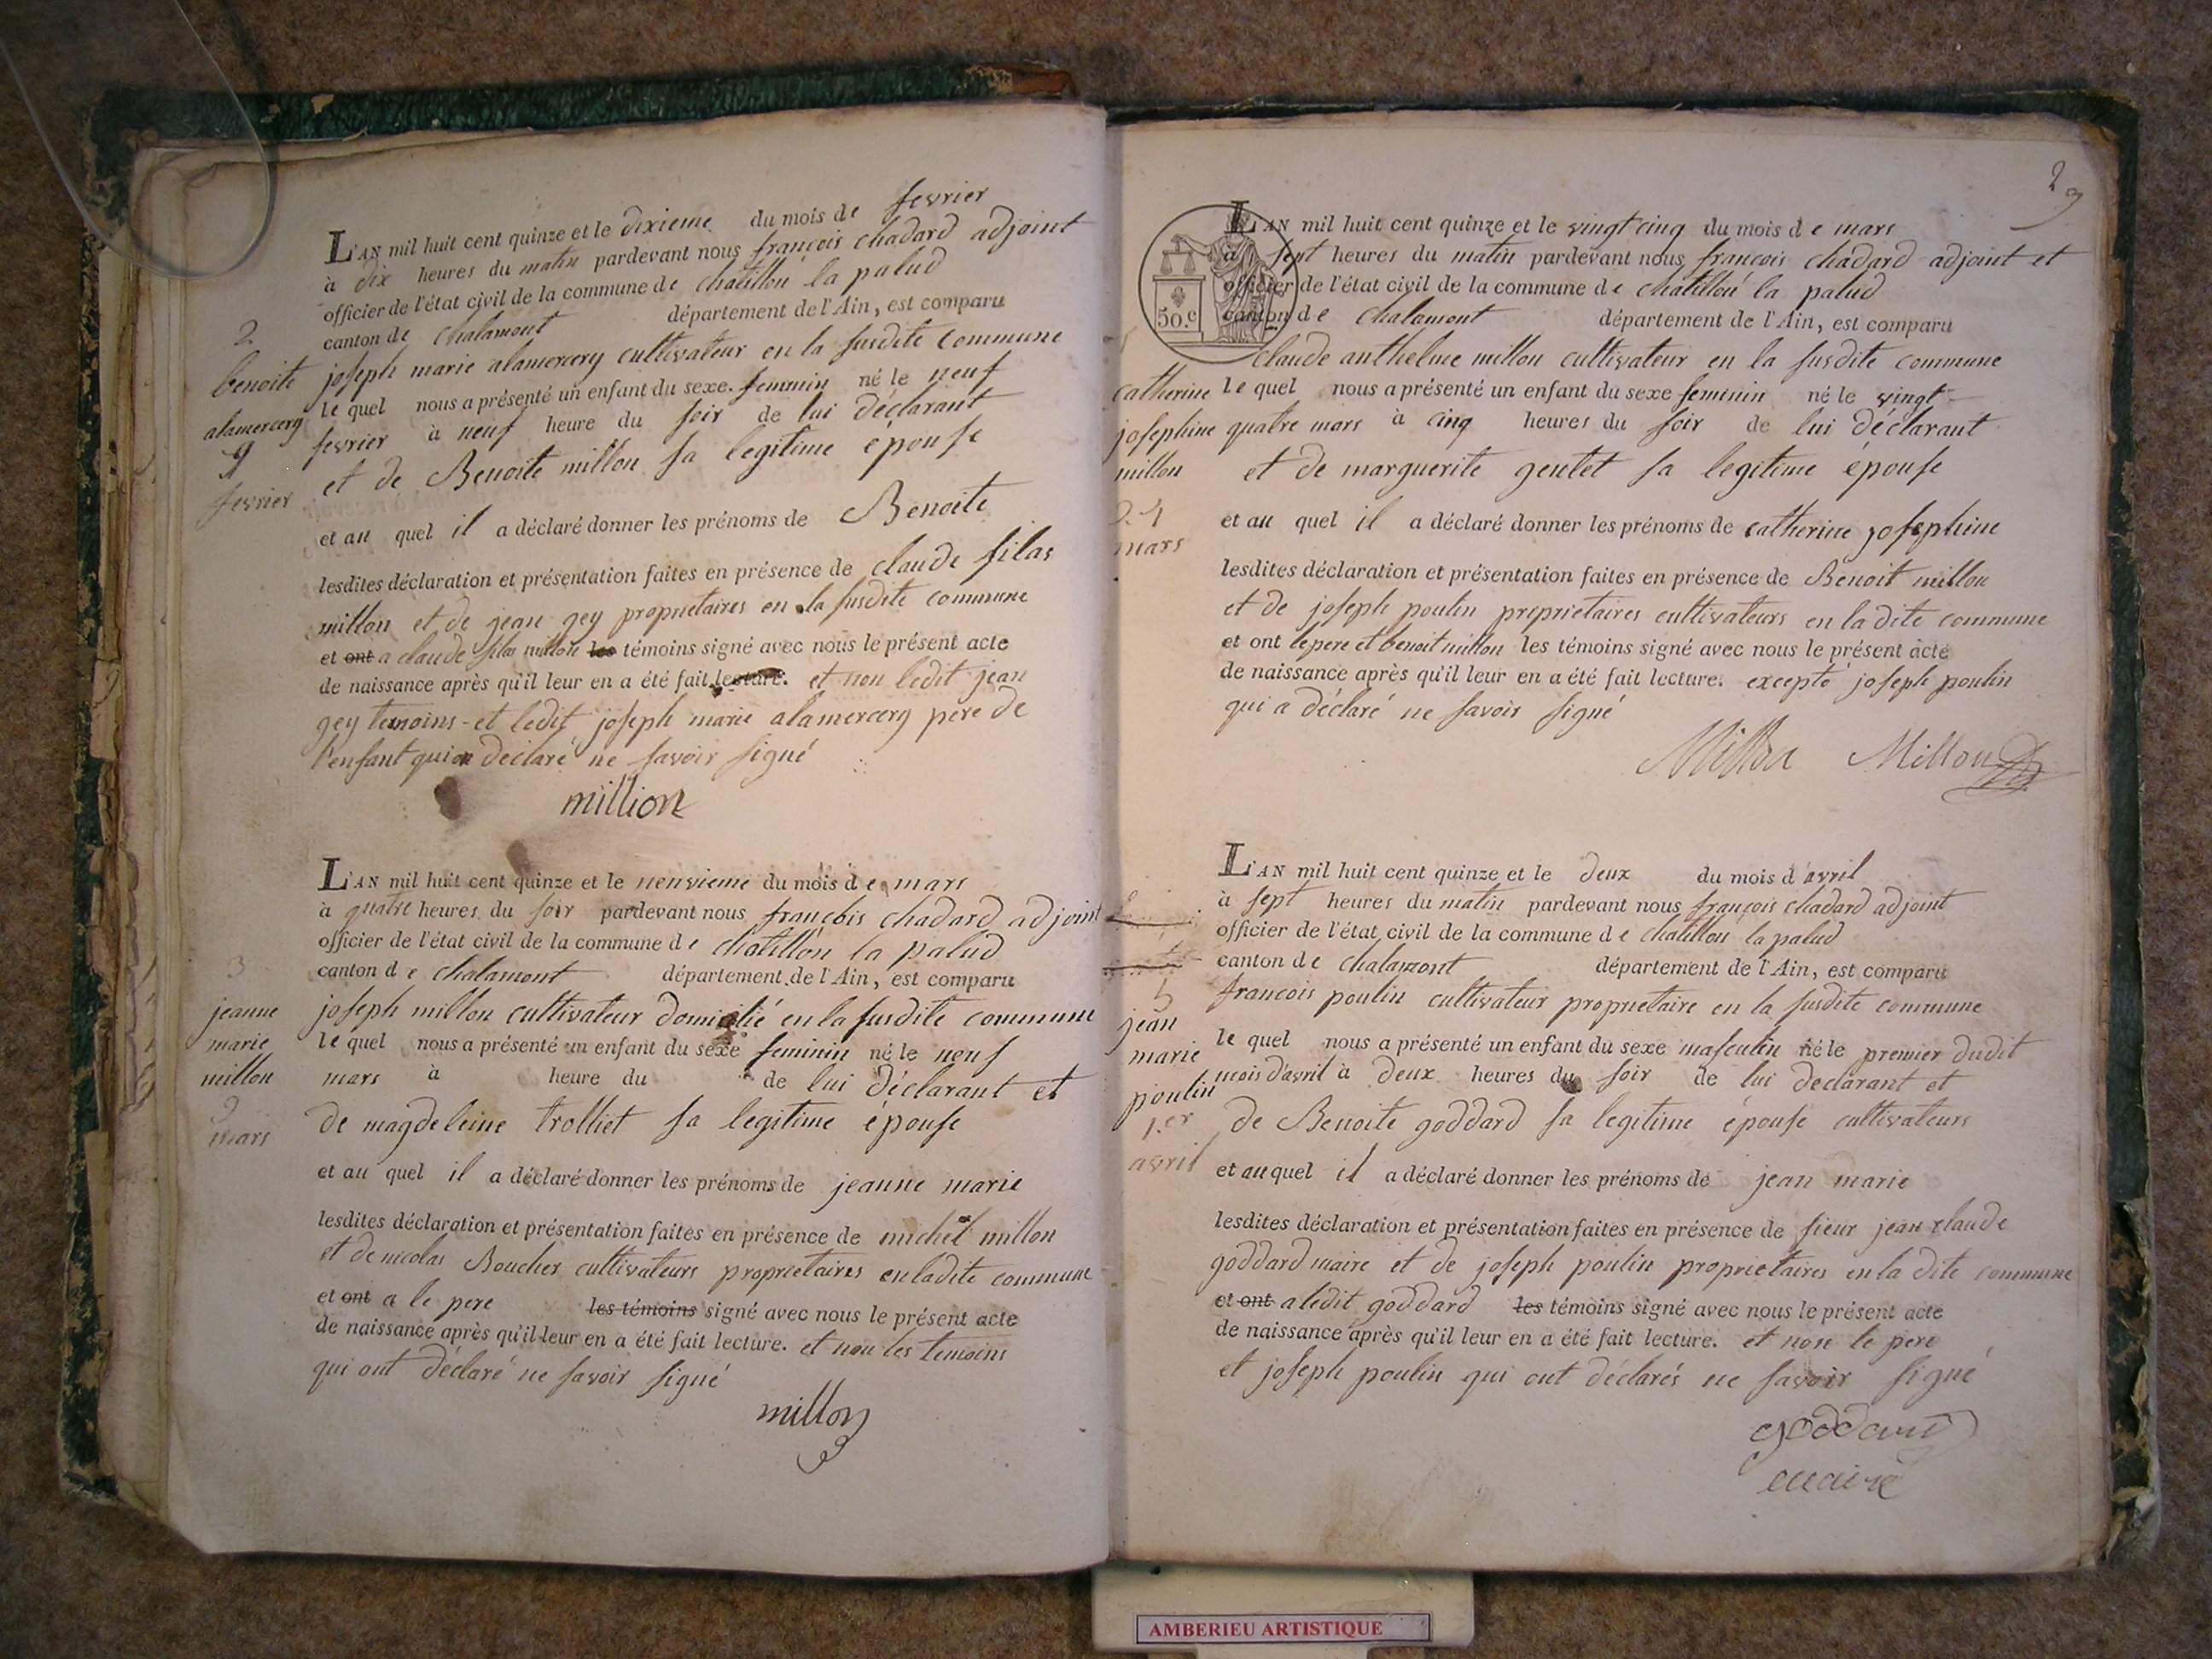 L'AN mil huit cent quinze et le dixieme du mois de fevrier
à dix heures du matin pardevant nous françois chadard adjoint
officier de l'état civil de la commune de chatillon la palud
canton de chalamont département de l'Ain, est comparu
joseph marie alamercery cultivateur en la susdite commune
le quel nous a présenté un enfant du sexe feminin né le neuf
fevrier à neuf heure du soir de lui déclarant
et de Benoite millon sa legitime épouse
et au quel il a déclaré donner les prénoms de Benoite
lesdites déclaration et présentation faites en présence de claude filas
millon et de jean gey proprietaires en la susdite commune
et ont a claude filas millon les témoins signé avec nous le présent acte
de naissance après qu'il leur en a été fait lecture. et non ledit jean
gey temoins et ledit joseph marie alamercery pere de
l'enfant qui on déclaré ne savoir signé
million
2
benoite
alamercery
9
fevrier
L'AN mil huit cent quinze et le neuvieme du mois de mars
à quatre heures du soir pardevant nous françois chadard adjoint
officier de l'état civil de la commune de chatillon la palud
canton de chalamont département de l'Ain, est comparu
joseph millon cultivateur domicilié en la susdite commune
le quel nous a présenté un enfant du sexe feminin né le neuf
mars à heure du de lui déclarant et
de magdeleine trolliet sa legitime épouse
et au quel il a déclaré donner les prénoms de jeanne marie
lesdites déclaration et présentation faites en présence de michel millon
et de nicolas Boucher cultivateurs proprietaires en ladite commune
et ont a le pere les témoins signé avec nous le présent acte
de naissance après qu'il leur en a été fait lecture. et non les temoins
qui ont déclaré ne savoir signé
millon
3
jeanne
marie
millon
9
mars
2
L'AN mil huit cent quinze et le vingt cinq du mois de mars
à sept heures du matin pardevant nous francois chadard adjoint et
officier de l'état civil de la commune de chatillon la palud
canton de chalamont département de l'Ain, est comparu
50.c
claude anthelme millon cultivateur en la susdite commune
le quel nous a présenté un enfant du sexe feminin né le vingt
quatre mars à cinq heures du soir de lui déclarant
et de marguerite gentet sa legitime épouse
et au quel il a déclaré donner les prénoms de catherine josephine
lesdites déclaration et présentation faites en présence de Benoit millon
et de joseph poulin proprietaires cultivateurs en la dite commune
et ont le pere et benoit millon les témoins signé avec nous le présent acte
de naissance après qu'il leur en a été fait lecture. excepté joseph poulin
qui a déclaré ne savoir signé
Millon Millon
catherine
josephine
millon
24
mars
L'AN mil huit cent quinze et le deux du mois d'avril
à sept heures du matin pardevant nous françois chadard adjoint
officier de l'état civil de la commune de chatillon la palud
canton de chalamont département de l'Ain, est comparu
francois poulin cultivateur proprietaire en la susdite commune
le quel nous a présenté un enfant du sexe masculin né le premier dudit
mois d'avril à deux heures du soir de lui declarant et
de Benoite goddard sa legitime épouse cultivateurs
et au quel il a déclaré donner les prénoms de jean marie
lesdites déclaration et présentation faites en présence de sieur jean claude
goddard maire et de joseph poulin proprietaires en la dite commune
et ont a ledit goddard les témoins signé avec nous le présent acte
de naissance après qu'il leur en a été fait lecture. et non le pere
et joseph poulin qui ont déclarés ne savoir signé
goddard
maire
5
jean
marie
poulin
1.er
avril
AMBERIEU ARTISTIQUE